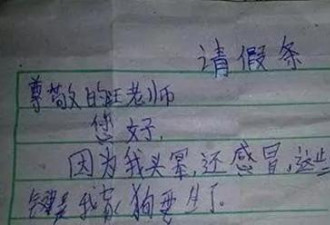 请假条
尊敬的旺老师
您好,
因为我头晕,还感冒,这些
关键是我家狗要生了.